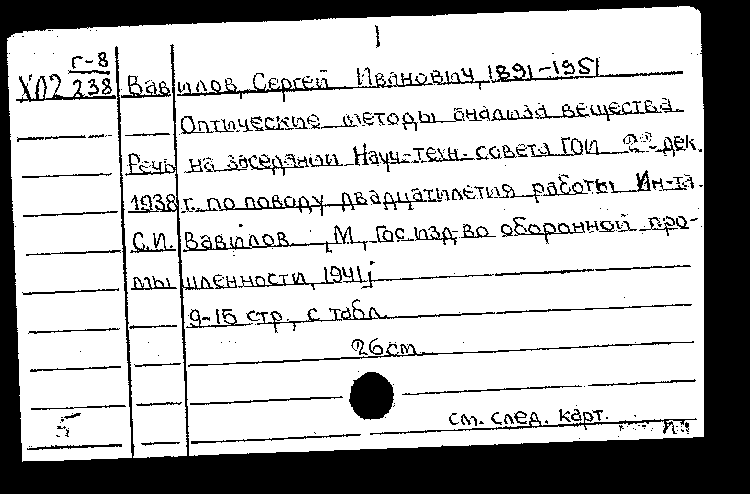 1
Г-8
ХЛ2 238 Вавилов, Сергей Иванович, 1891-1951
Оптические методы анализа вещества.
Речь на заседании Науч-техн. совета ГОИ 22 дек.
1938 г. по поводу двадцатилетия работы Ин-та.
С.И. Вавилов, М, Гос изд-во оборонной про-
мышленности, 1941,
9-15 стр., с табл.
26 см
см. след. карт.
5